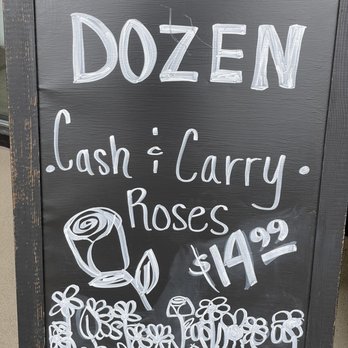 DOZEN
.Cash & Carry.
Roses
$14.99